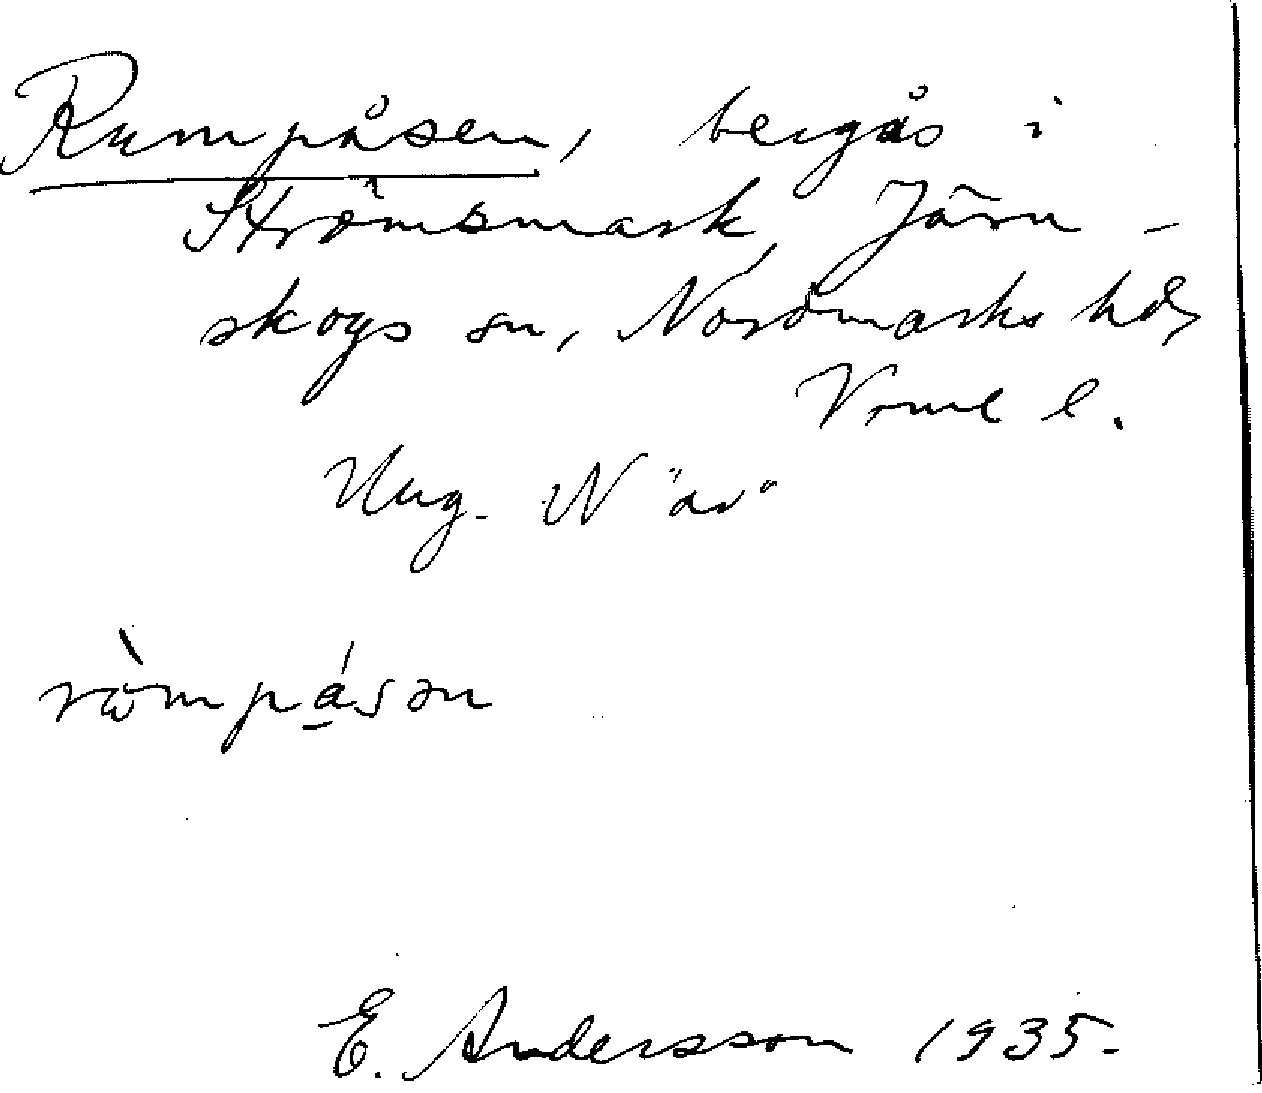 Rumpåsen, bergås i
Strömsmark, Järn-
skogs sn, Nordmarks hd,
Vrml l.
Uug. N "av"
ròmpá̱sən
E. Andersson 1935.